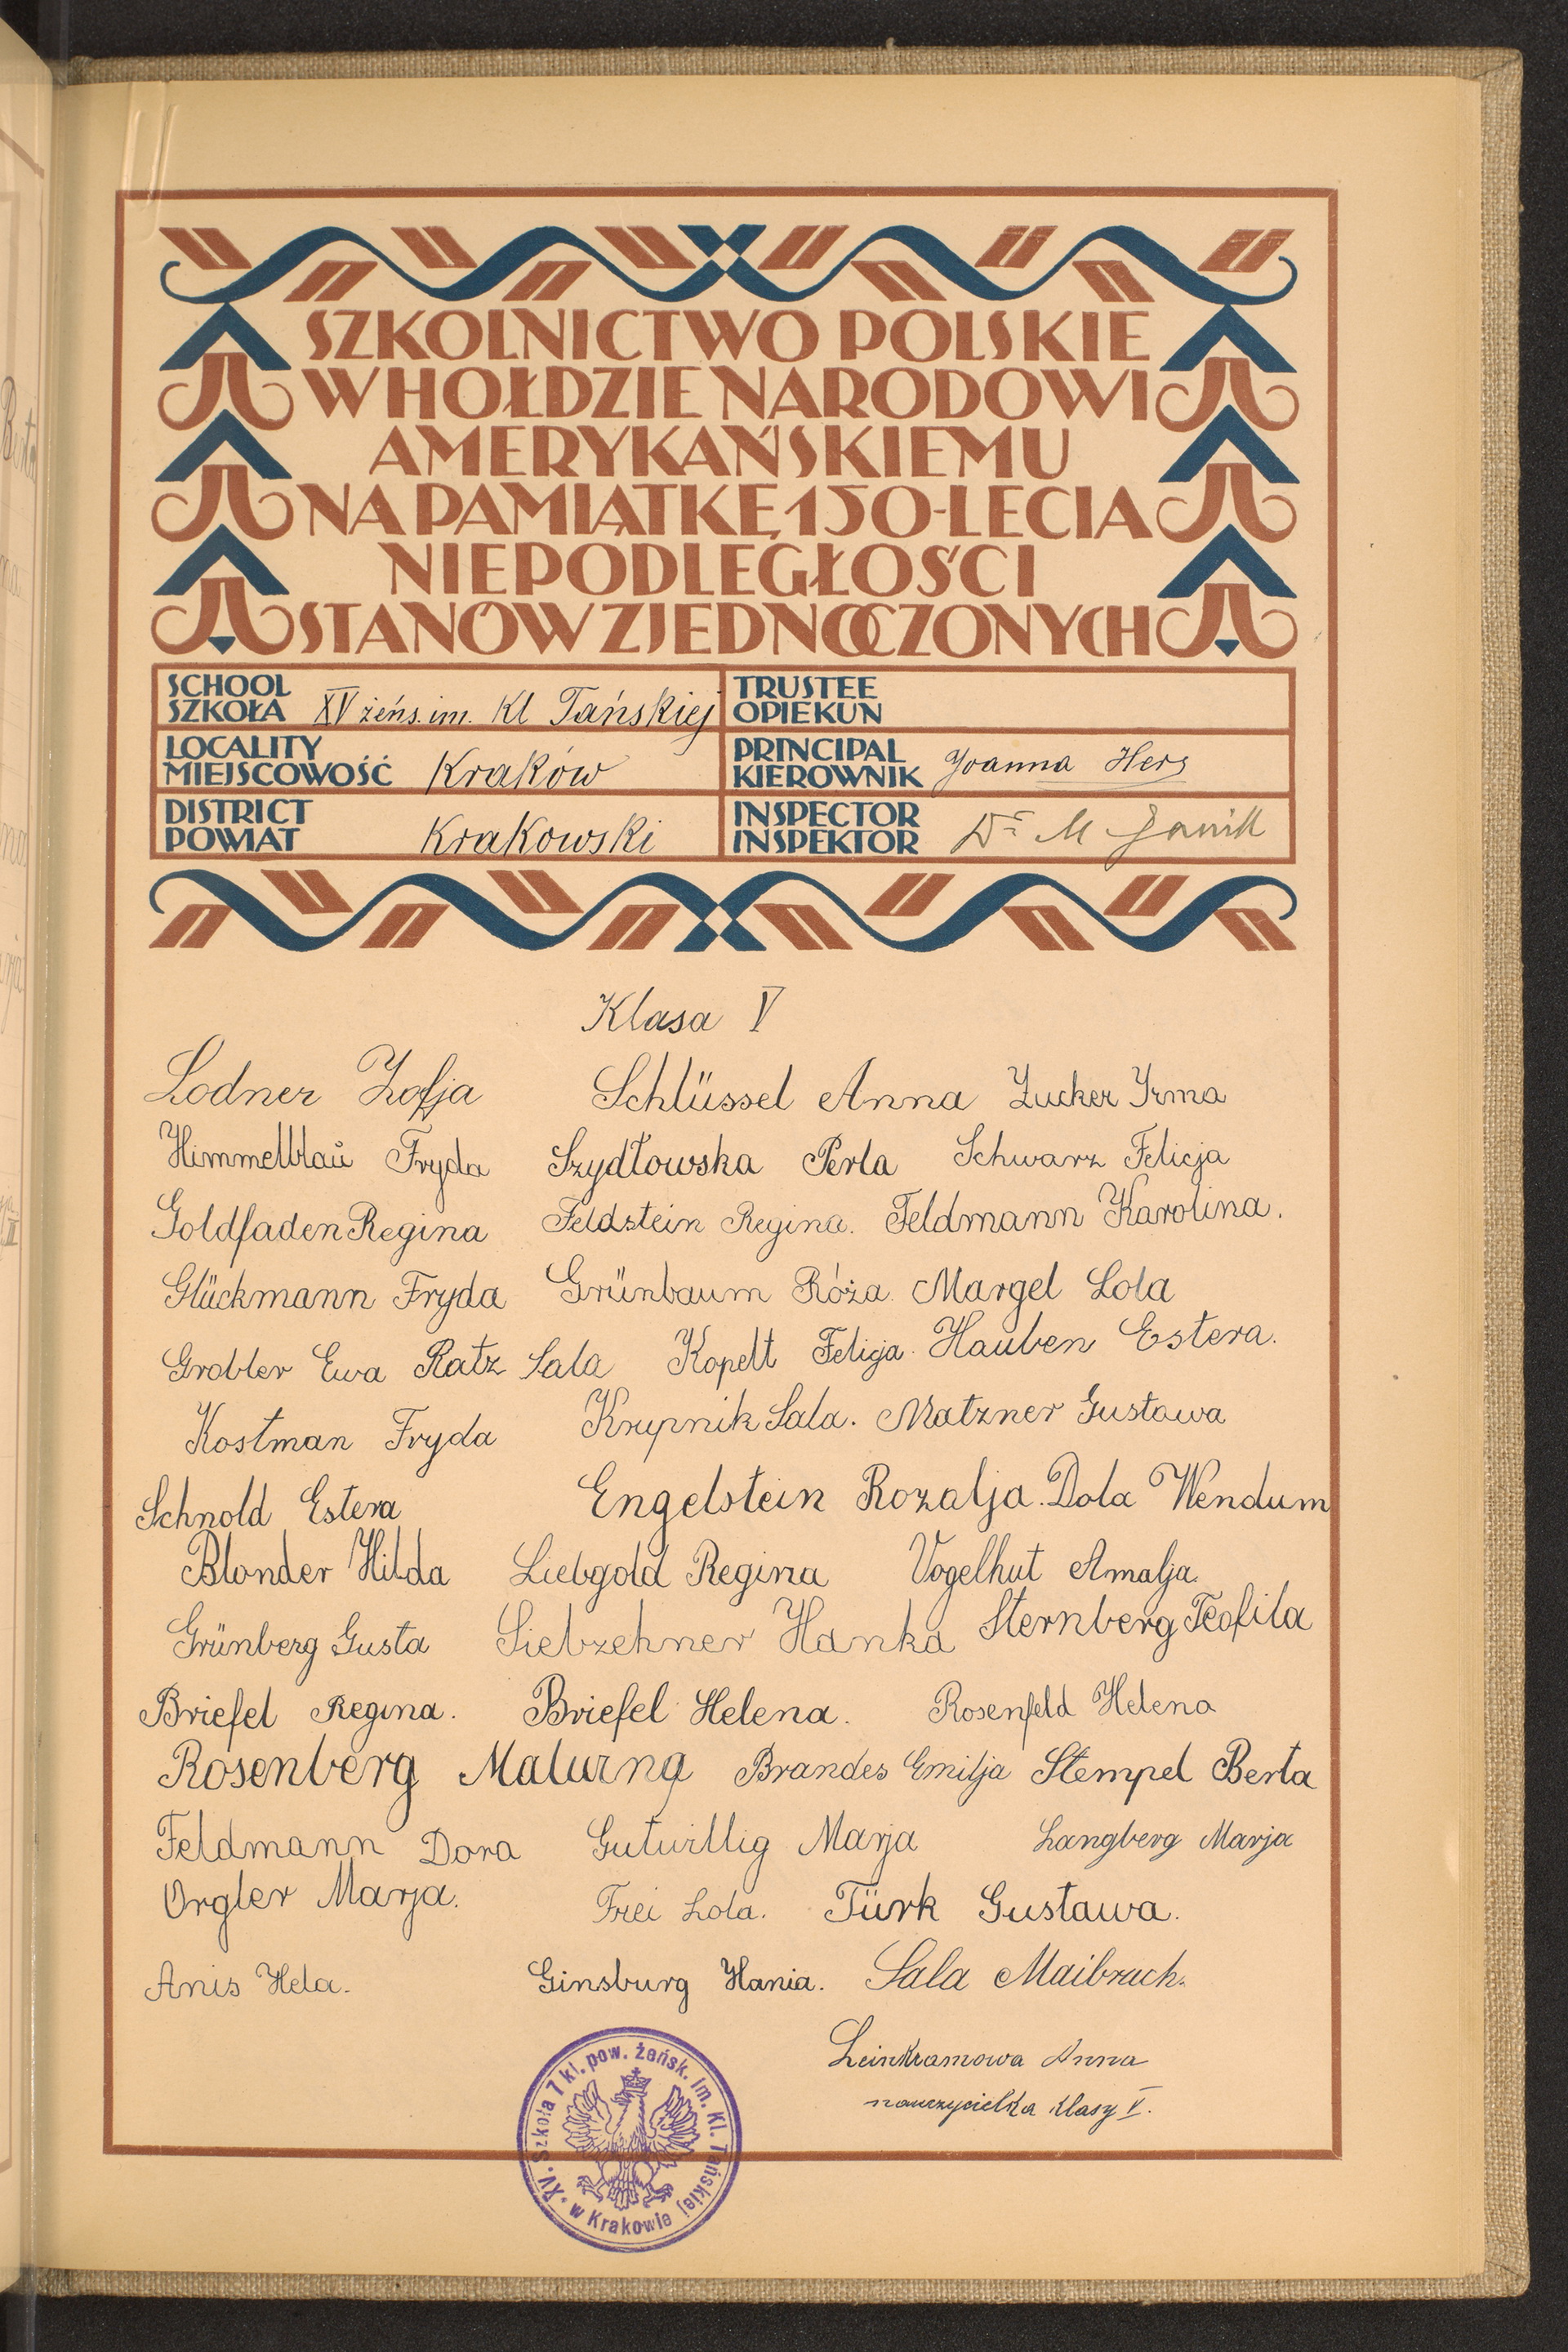 SZKOLNICTWO POLSKIE
W HOŁDZIE NARODOWI
AMERYKAŃSKIEMU
NA PAMIĄTKĘ 150-LECIA
NIEPODLEGŁOŚCI
STANÓW ZJEDNOCZONYCH
SCHOOL
SZKOŁA XV żeńs. im. Kl Tańskiej
TRUSTEE
OPIEKUN
LOCALITY
MIEJSCOWOŚĆ Kraków
PRINCIPAL
KIEROWNIK Joanna Hers
DISTRICT
POWIAT Krakowski
INSPECTOR
INSPEKTOR Dr M Janik
Klasa V
Lodner Zofja Schlüssel Anna Zucker Irma
Himmelblau Fryda Szydłowska Perla Schwarz Felicja
Goldfaden Regina Feldstein Regina. Feldmann Karolina.
Glückmann Fryda Grünbaum Róża. Margel Lola
Grobler Ewa Ratz Sala Kopelt Felicja. Hauben Estera.
Kostman Fryda Krupnik Sala. Matzner Gustawa
Schnold Estera Engelstein Rozalja. Dola Wendum
Blonder Hilda Liebgold Regina Vogelhut Amalja.
Grünberg Gusta Siebzehner Hanka Sternberg Teofila
Briefel Regina. Briefel Helena. Rosenfeld Helena
Rosenberg Malwina Brandes Emilja Stempel Berta
Feldmann Dora Gutwillig Marja Langberg Marja
Orgler Marja. Frei Lola. Türk Gustawa.
Anis Hela. Ginsburg Hania. Sala Maibruch.
Leinkramowa Anna
nauczycielka klasy V.
XV. Szkoła 7 kl. pow. żeńsk. im. Kl. Tańskiej
w Krakowie